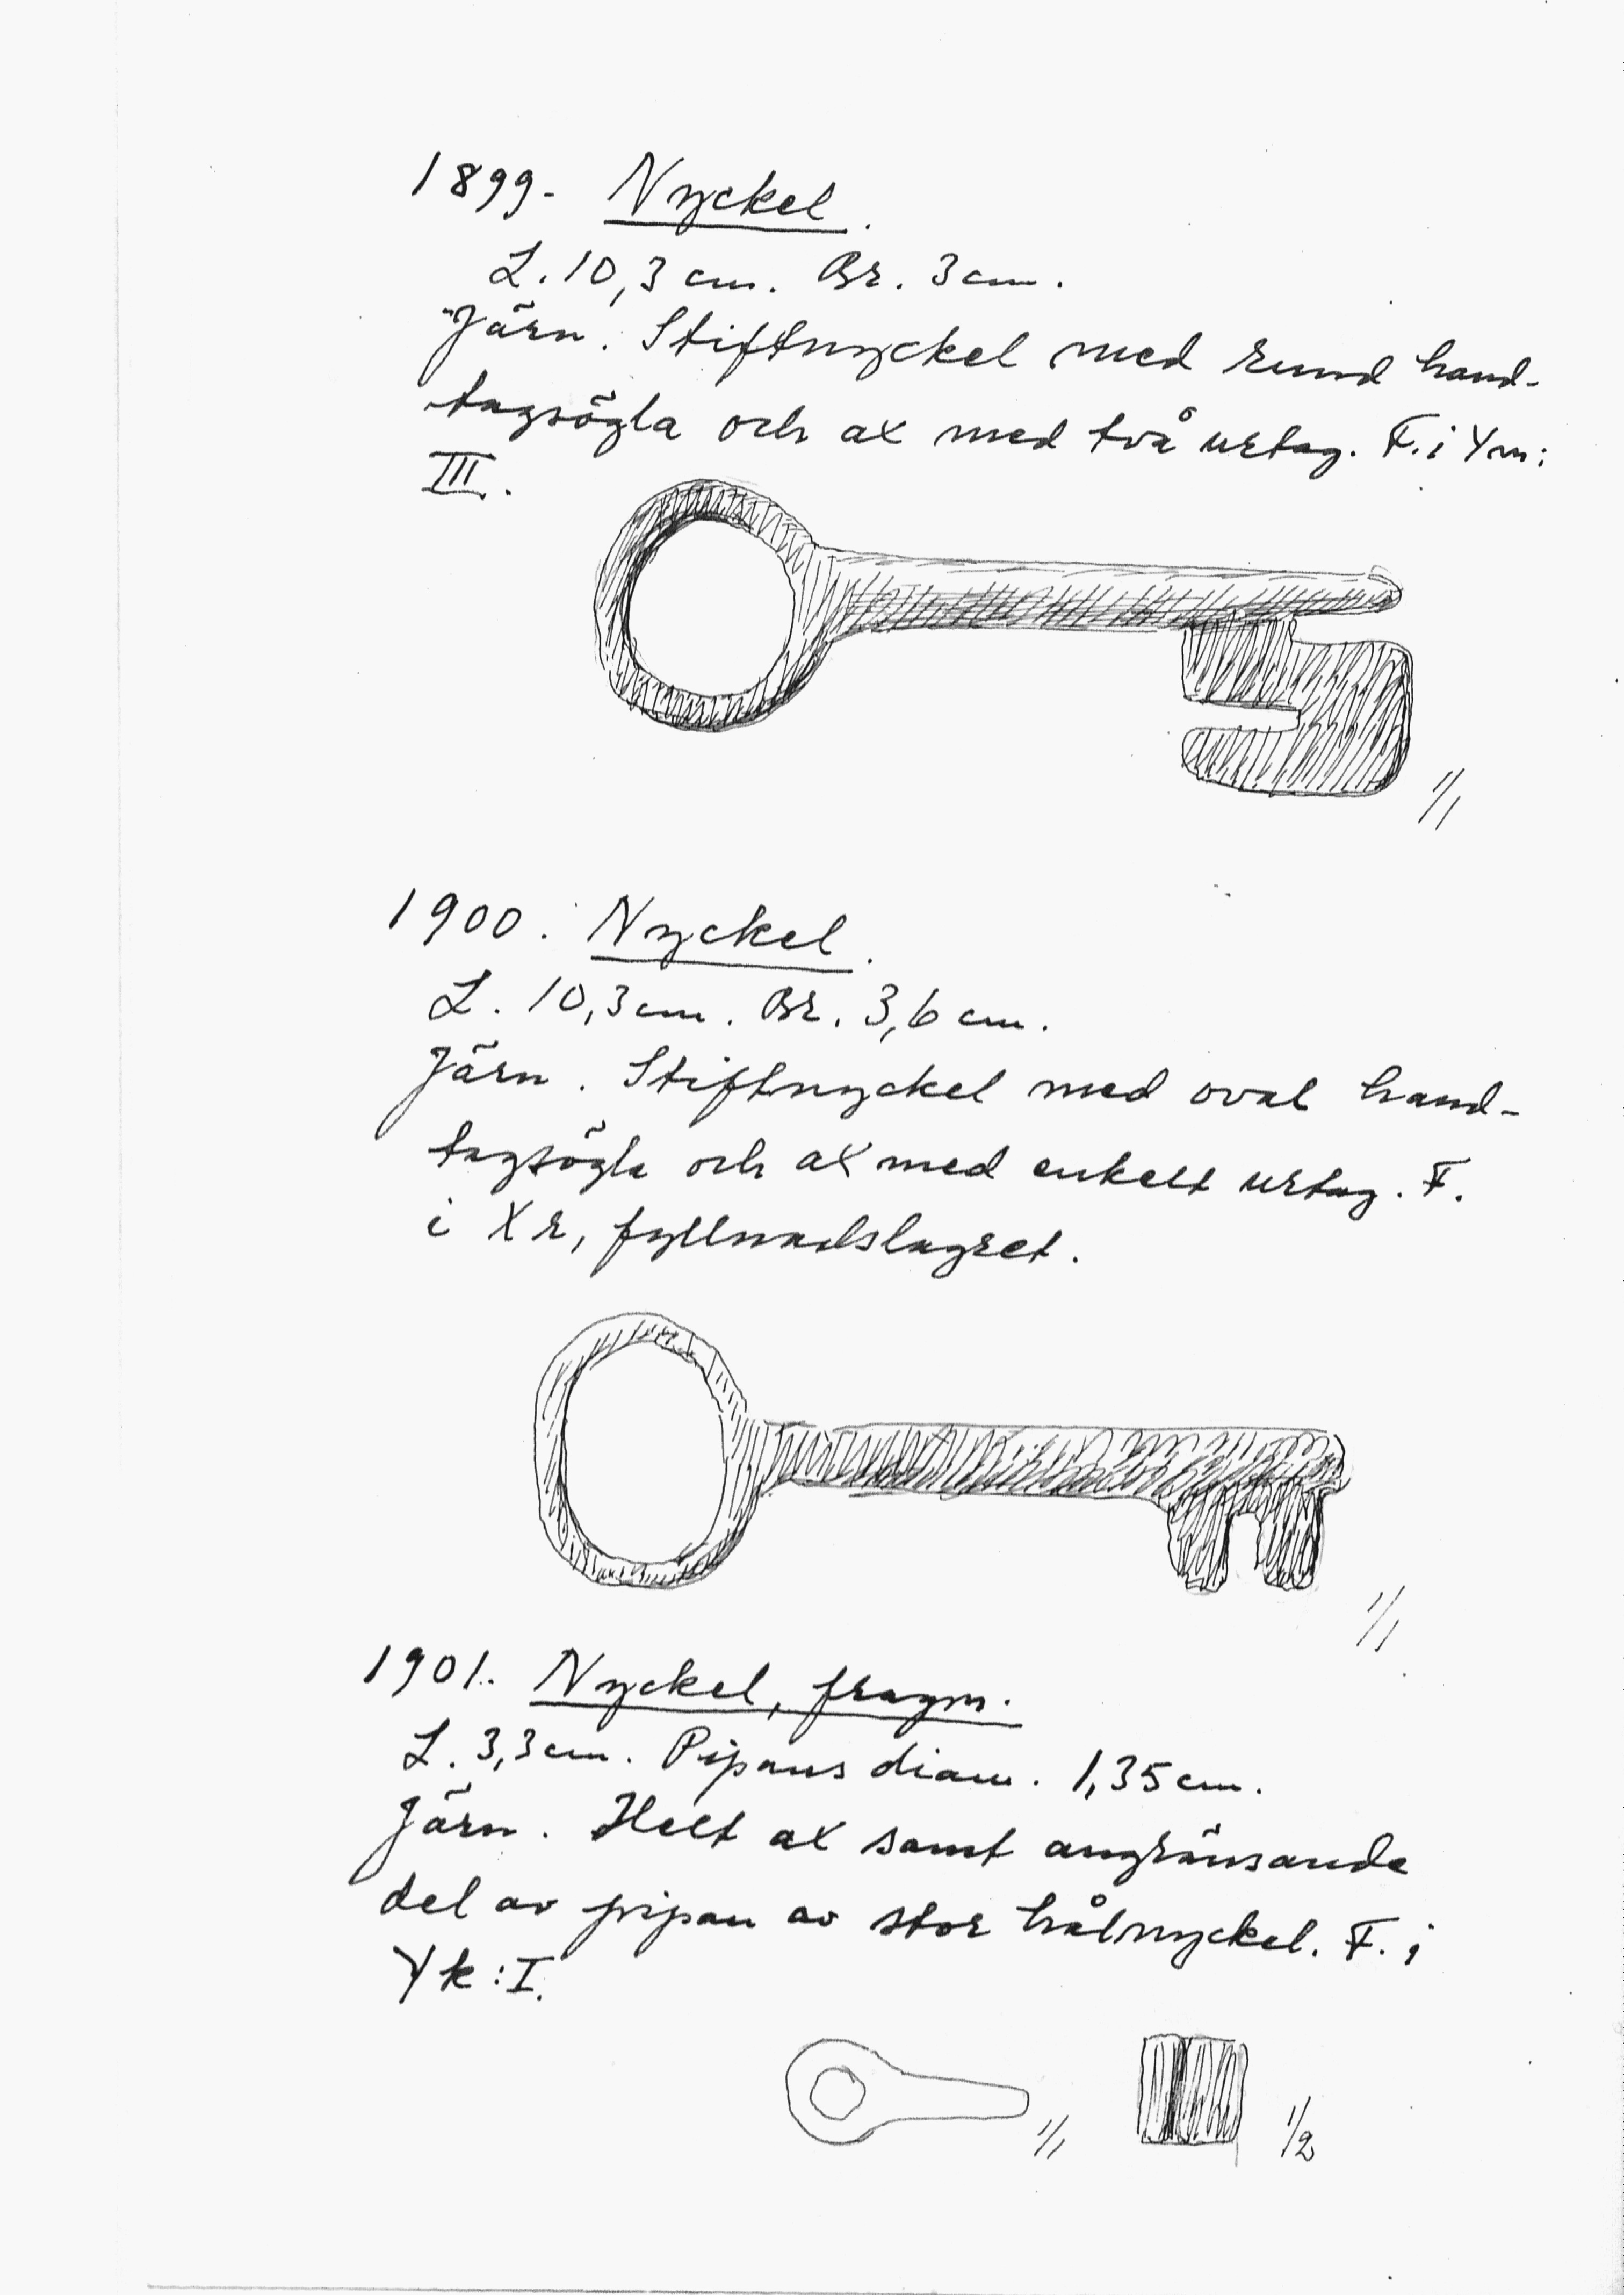 1899. Nyckel.
L. 10,3 cm. Br. 3 cm.
Järn. Stiftnyckel med rund hand-
tagsögla och ax med två urtag. F. i Ym:
III.
1/1
1900. Nyckel.
L. 10,3 cm. Br. 3,6 cm.
Järn. Stiftnyckel med oval hand-
tagsögla och ax med enkelt urtag. F.
i Xr, fyllnadslagret.
1/1
1901. Nyckel, fragm.
L. 3,3 cm. Pipans diam. 1,35 cm.
Järn. Helt ax samt angränsande
del av pipan av stor hålnyckel. F. i
Yk:I.
1/1
1/2